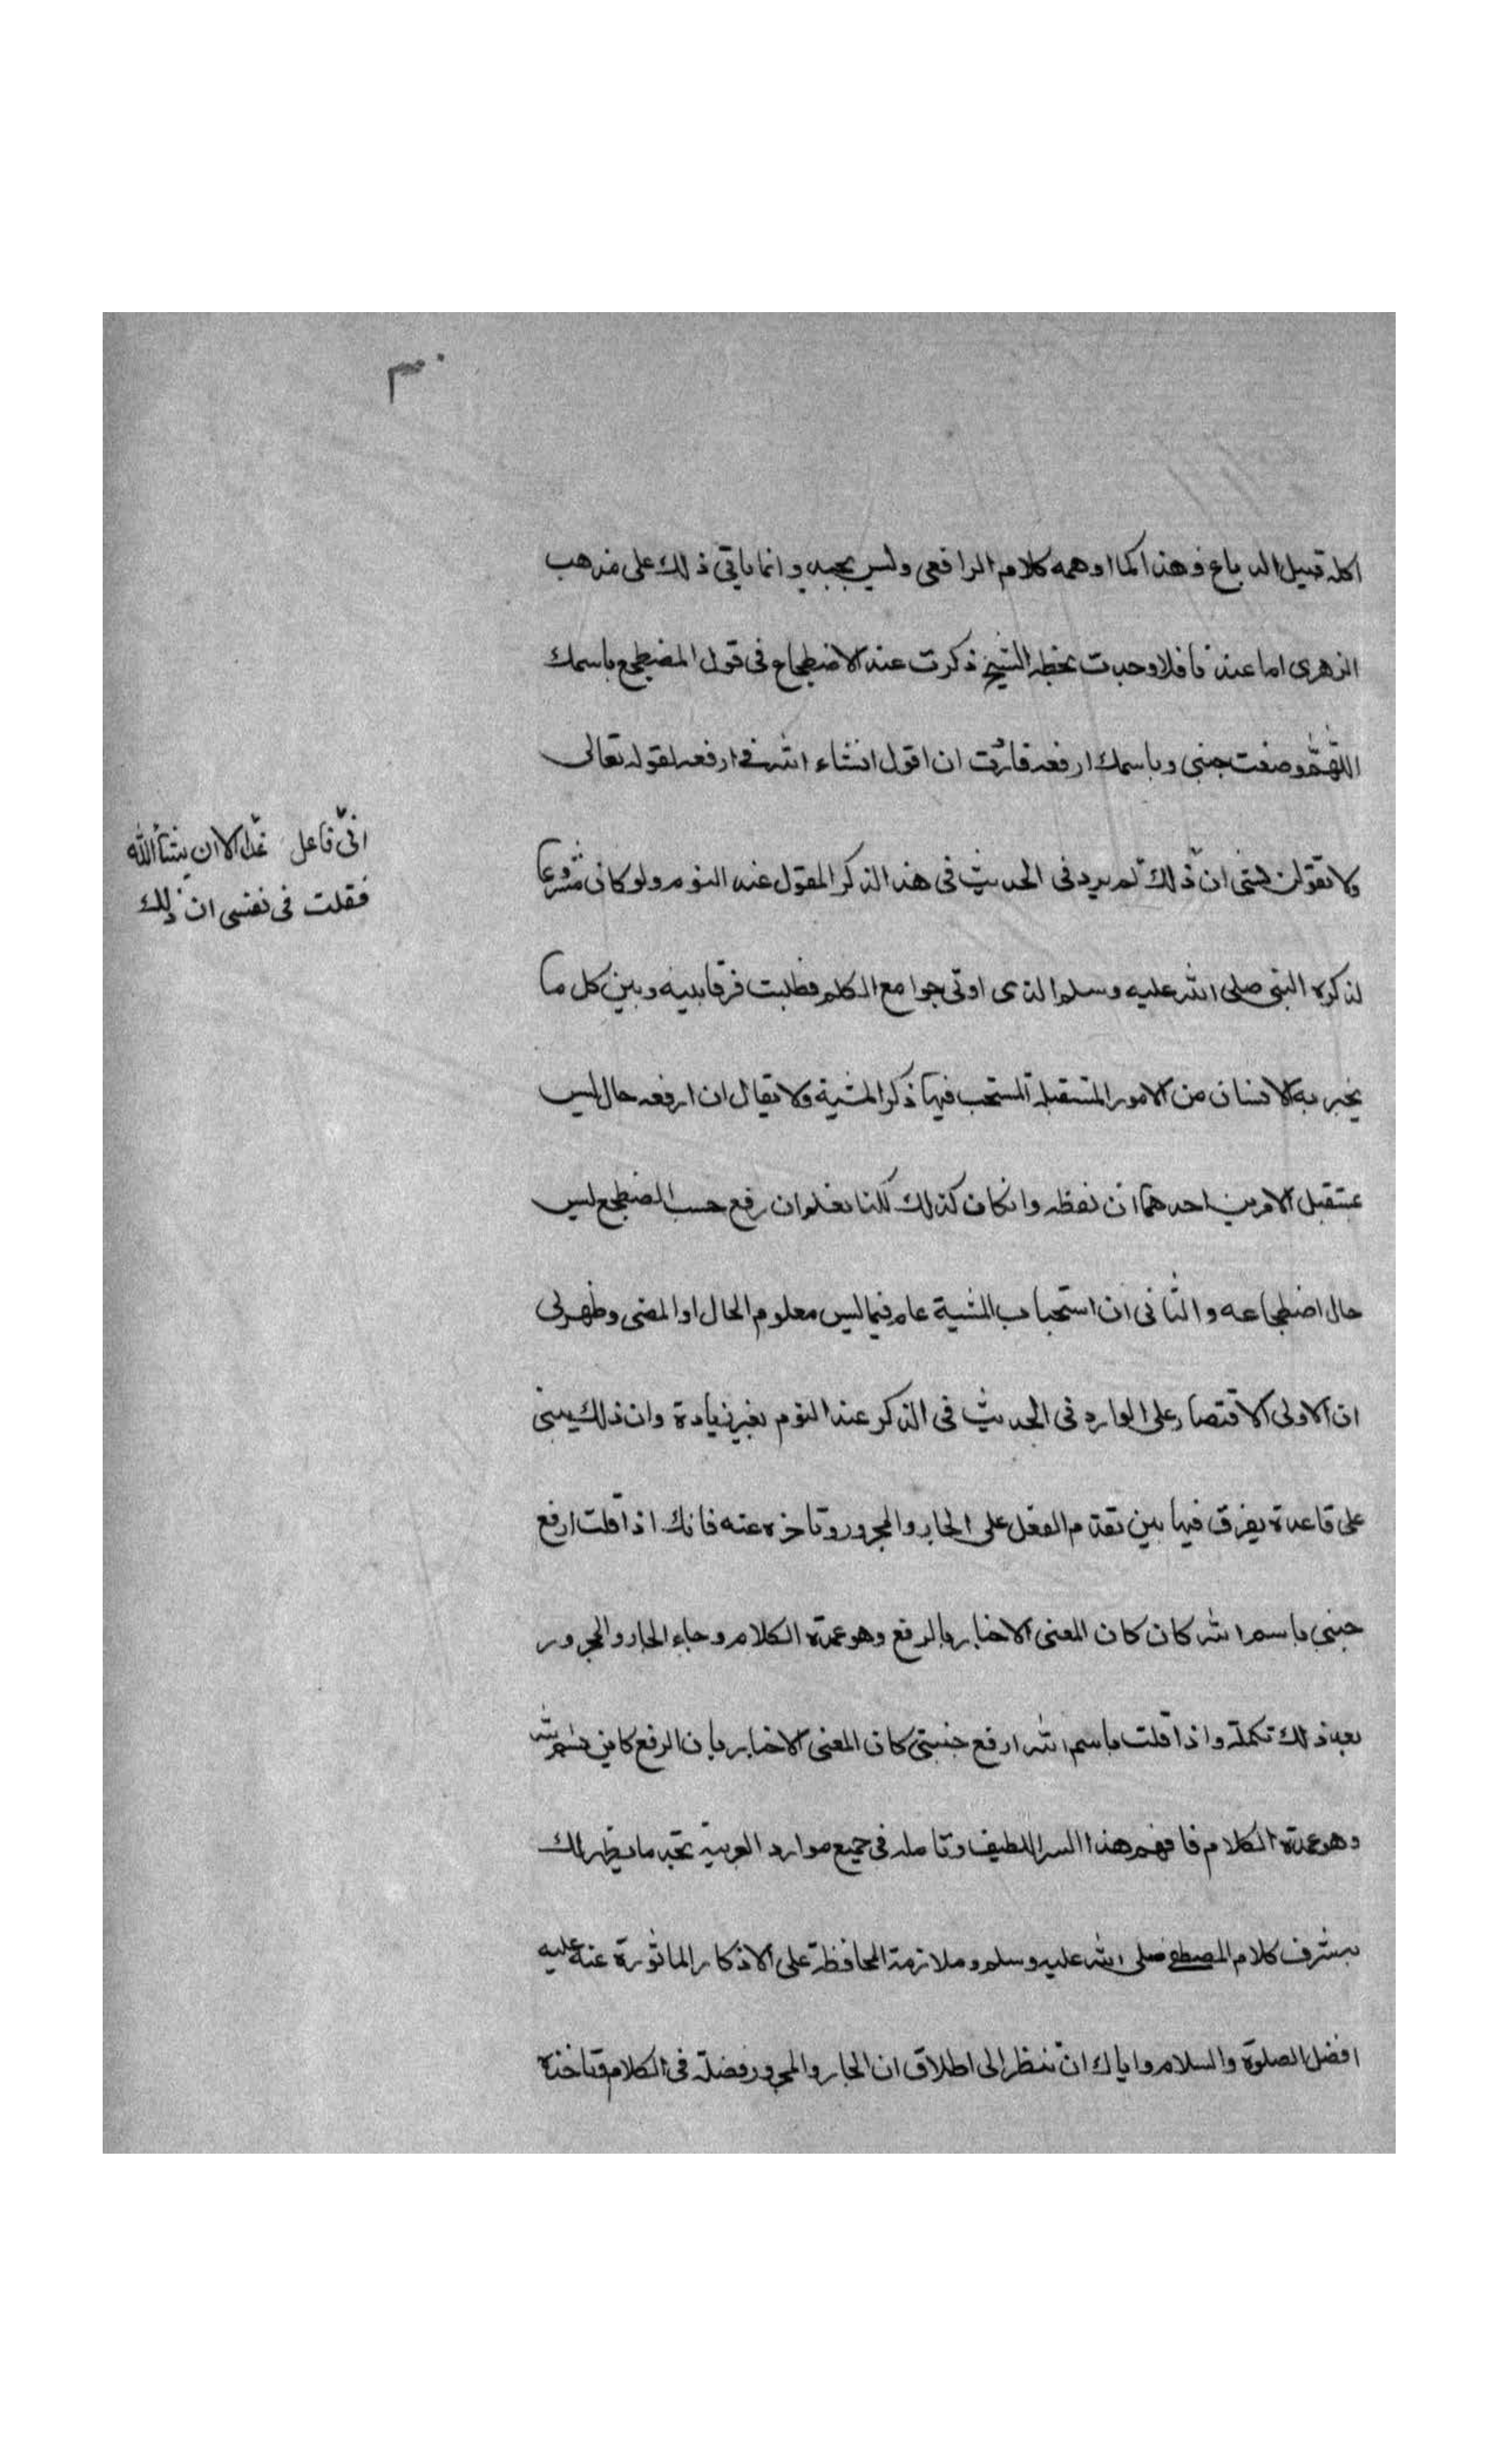 ٣٠
اكله قبيل الدباغ وهذا كما اوهمه كلام الرافعى وليس بجيد وانما ياتى ذلك على مذهب
الزهرى اما عندنا فلا وجدت بخط الشيخ ذكرت عند الاضطجاع فى قول المضطجع باسمك
اللهم وضعت جنبى وباسمك ارفعه فاردت ان اقول انشاء الله فى ارفعه لقوله تعالى
ولا تقولن لشئ ان ذلك لم يرد فى الحديث فى هذا الذكر المقول عند النوم ولو كان مشروعا
انى فاعل غدا الا ان يشأ الله
فقلت فى نفسى ان ذلك
لذكره النبى صلى الله عليه وسلم الذى اوتى جوامع الكلم فطلبت فرقا بينه وبين كل ما
يخبر به الانسان من الامور المستقبلة المستحب فيها ذكر المشية ولا يقال ان ارفعه حال ليس
بمستقبل لامرين احدهما ان لفظه وانكان كذلك لكنا نعلم ان رفع جنب المضطجع ليس
حال اضطجاعه والثانى ان استحباب المشية عام فيما ليس معلوم الحال او المضى وظهر لى
ان الاولى الاقتصار على الوارد فى الحديث فى الذكر عند النوم بغير زيادة وان ذلك يبنى
على قاعدة يفرق فيها بين تقدم الفعل على الجار والمجرور وتاخره عنه فانك اذا قلت ارفع
جنبى باسم الله كان كان المعنى الاخبار بالرفع وهو عمدة الكلام وجاء الجار والمجرور
بعد ذلك تكملة واذا قلت باسم الله ارفع جنبى كان المعنى الاخبار بان الرفع كاين بسم الله
وهو عمدة الكلام فافهم هذا السر اللطيف وتامله فى جميع موارد العربية تجد ما يظهر لك
بشرف كلام المصطفى صلى الله عليه وسلم وملازمة المحافظة على الاذكار الماثورة عنه عليه
افضل الصلوة والسلام واياك ان تنظر الى اطلاق ان الجار والمجرور فضلة فى الكلام وتاخذه